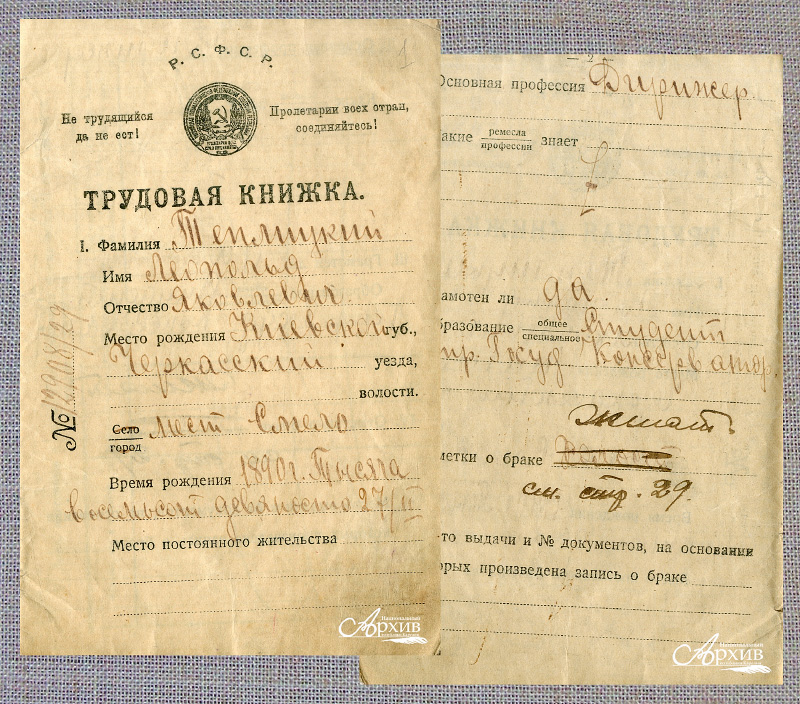 Р. С. Ф. С. Р.
1
Не трудящийся
да не ест!
Пролетарии всех стран,
соединяйтесь!
ТРУДОВАЯ КНИЖКА.
I. Фамилия Теплицкий
Имя Леопольд
Отчество Яковлевич
Место рождения Киевской губ.,
Черкасский уезда,
волости.
Село
город мест Смело
Время рождения 1890 г. Тысяча
восемьсот девяносто 27/II
Место постоянного жительства
№ 12908/29
Национальный
Архив
— 2 —
Основная профессия Дирижер.
акие ремесла
профессии знает
рамотен ли да.
бразование общее
специальное Студент
Консерватор
женат
метки о браке
см. стр. 29.
то выдачи и № документов, на основании
орых произведена запись о браке
Национальный
Архив